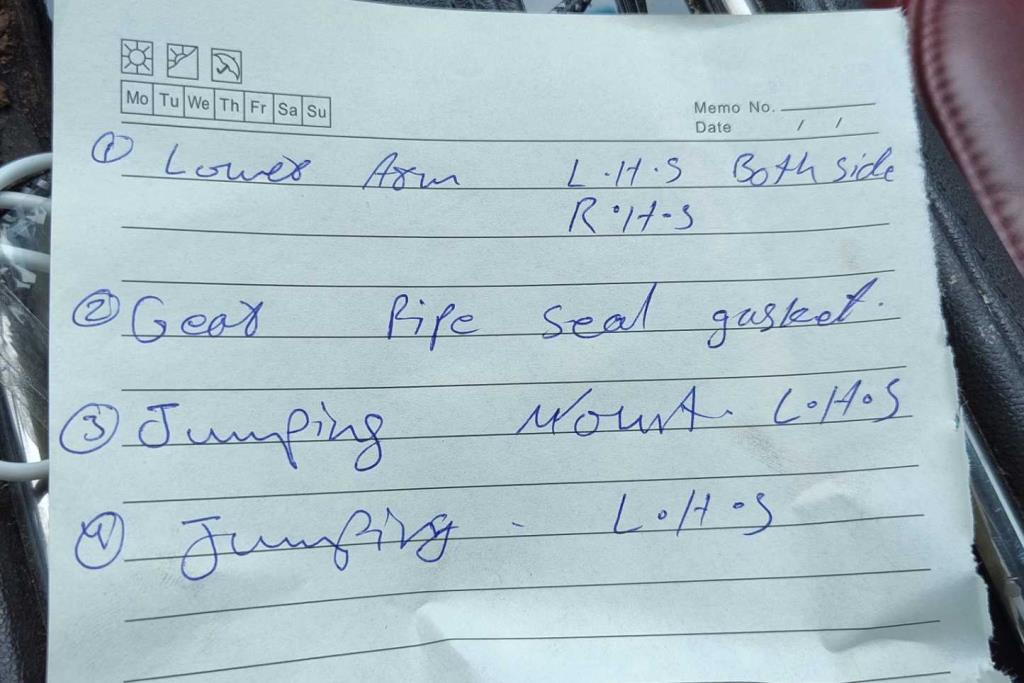 Mo Tu We Th Fr Sa Su
Memo No.
Date / /
① Lower Arm L.H.S Both side
R.H.S
② Gear Pipe seal gasket.
③ Jumping Mount. L.H.S
④ Jumping. L.H.S